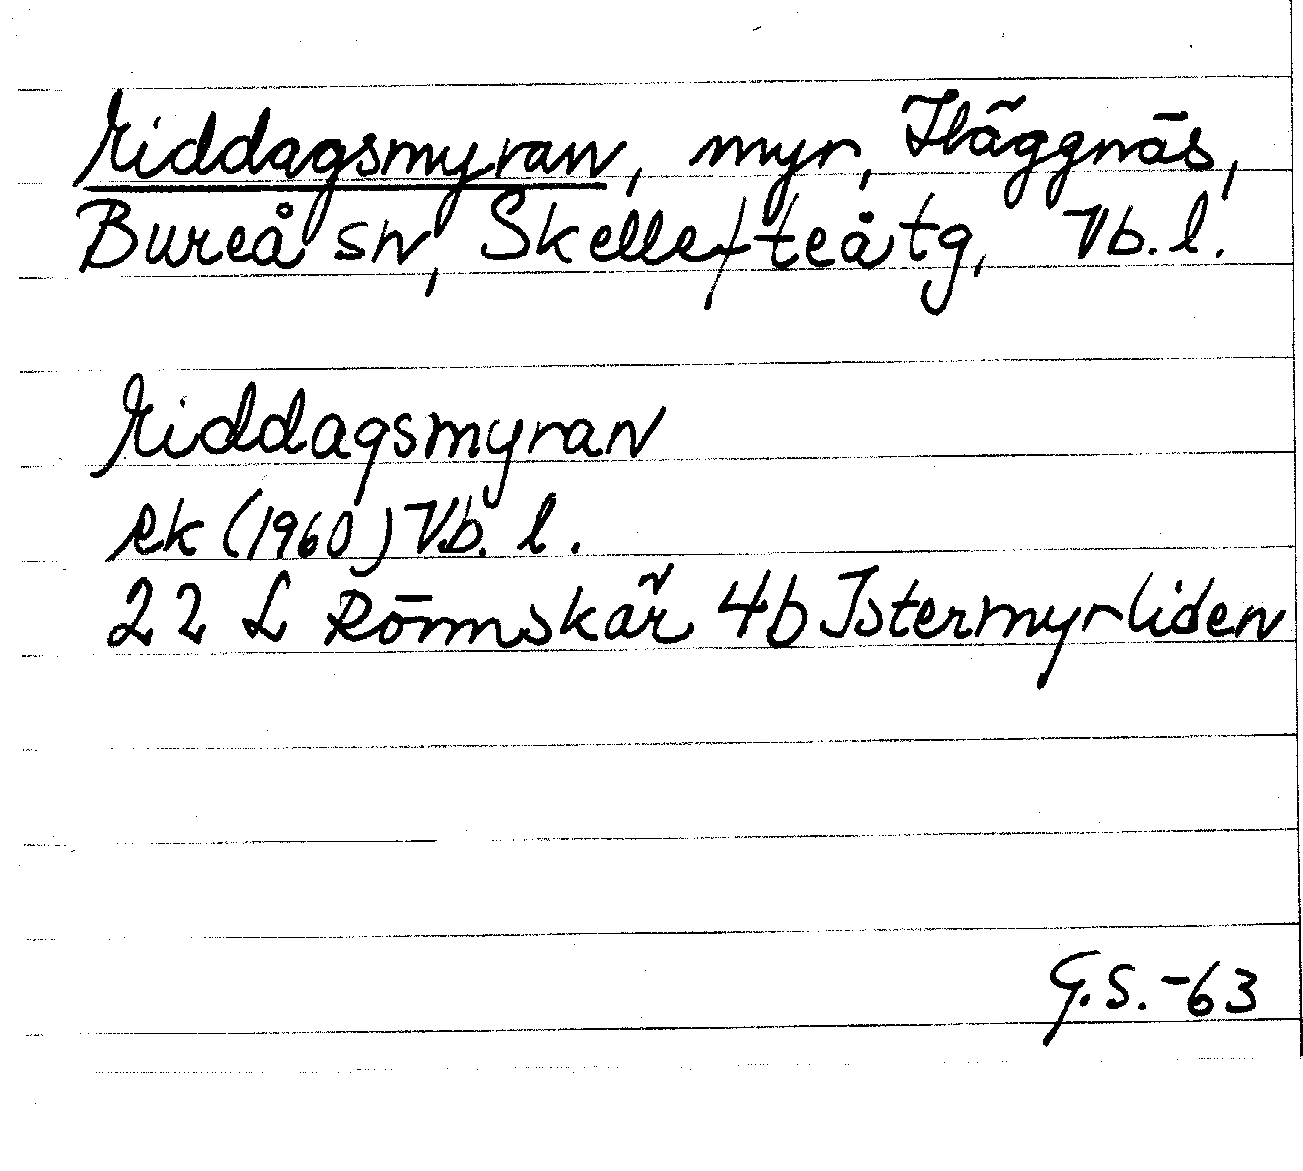 Middagsmyran, myr, Häggnäs,
Bureå sn, Skellefteå tg, Vb. l.
Middagsmyran
Rk (1960) Vb. l.
22 L Rönnskär 4b Istermyrliden
G.S.-63